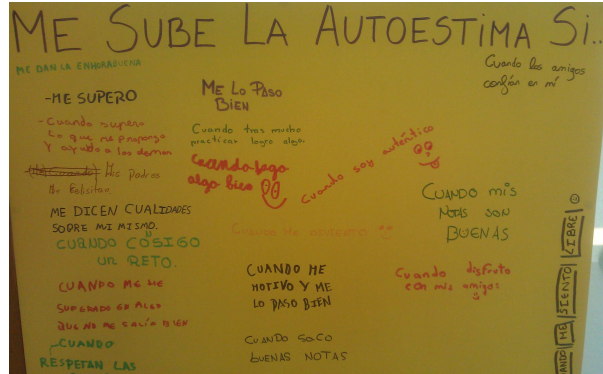 ME SUBE LA AUTOESTIMA SI...
ME DAN LA ENHORABUENA
-ME SUPERO
-Cuando supero
Lo que me propongo
Y ayudo a los demas
Mis Padres
Me Felicitan
ME DICEN CUALIDADES
SOBRE MI MISMO.
CUANDO COSIGO
UN RETO.
CUANDO ME HE
SUPERADO EN ALGO
QUE NO ME SALÍA BIEN
-CUANDO
RESPETAN LAS
ME LO PASO
BIEN
Cuando tras mucho
practicar logro algo.
Cuando hago
algo bien
Cuando soy auténtico
CUANDO ME
CUANDO ME
MOTIVO Y ME
LO PASO BIEN
CUANDO SACO
BUENAS NOTAS
Cuando los amigos
confían en mí
CUANDO mis
NOTAS SON
BUENAS
Cuando disfruto
con mis amigos
ANDO ME SIENTO LIBRE